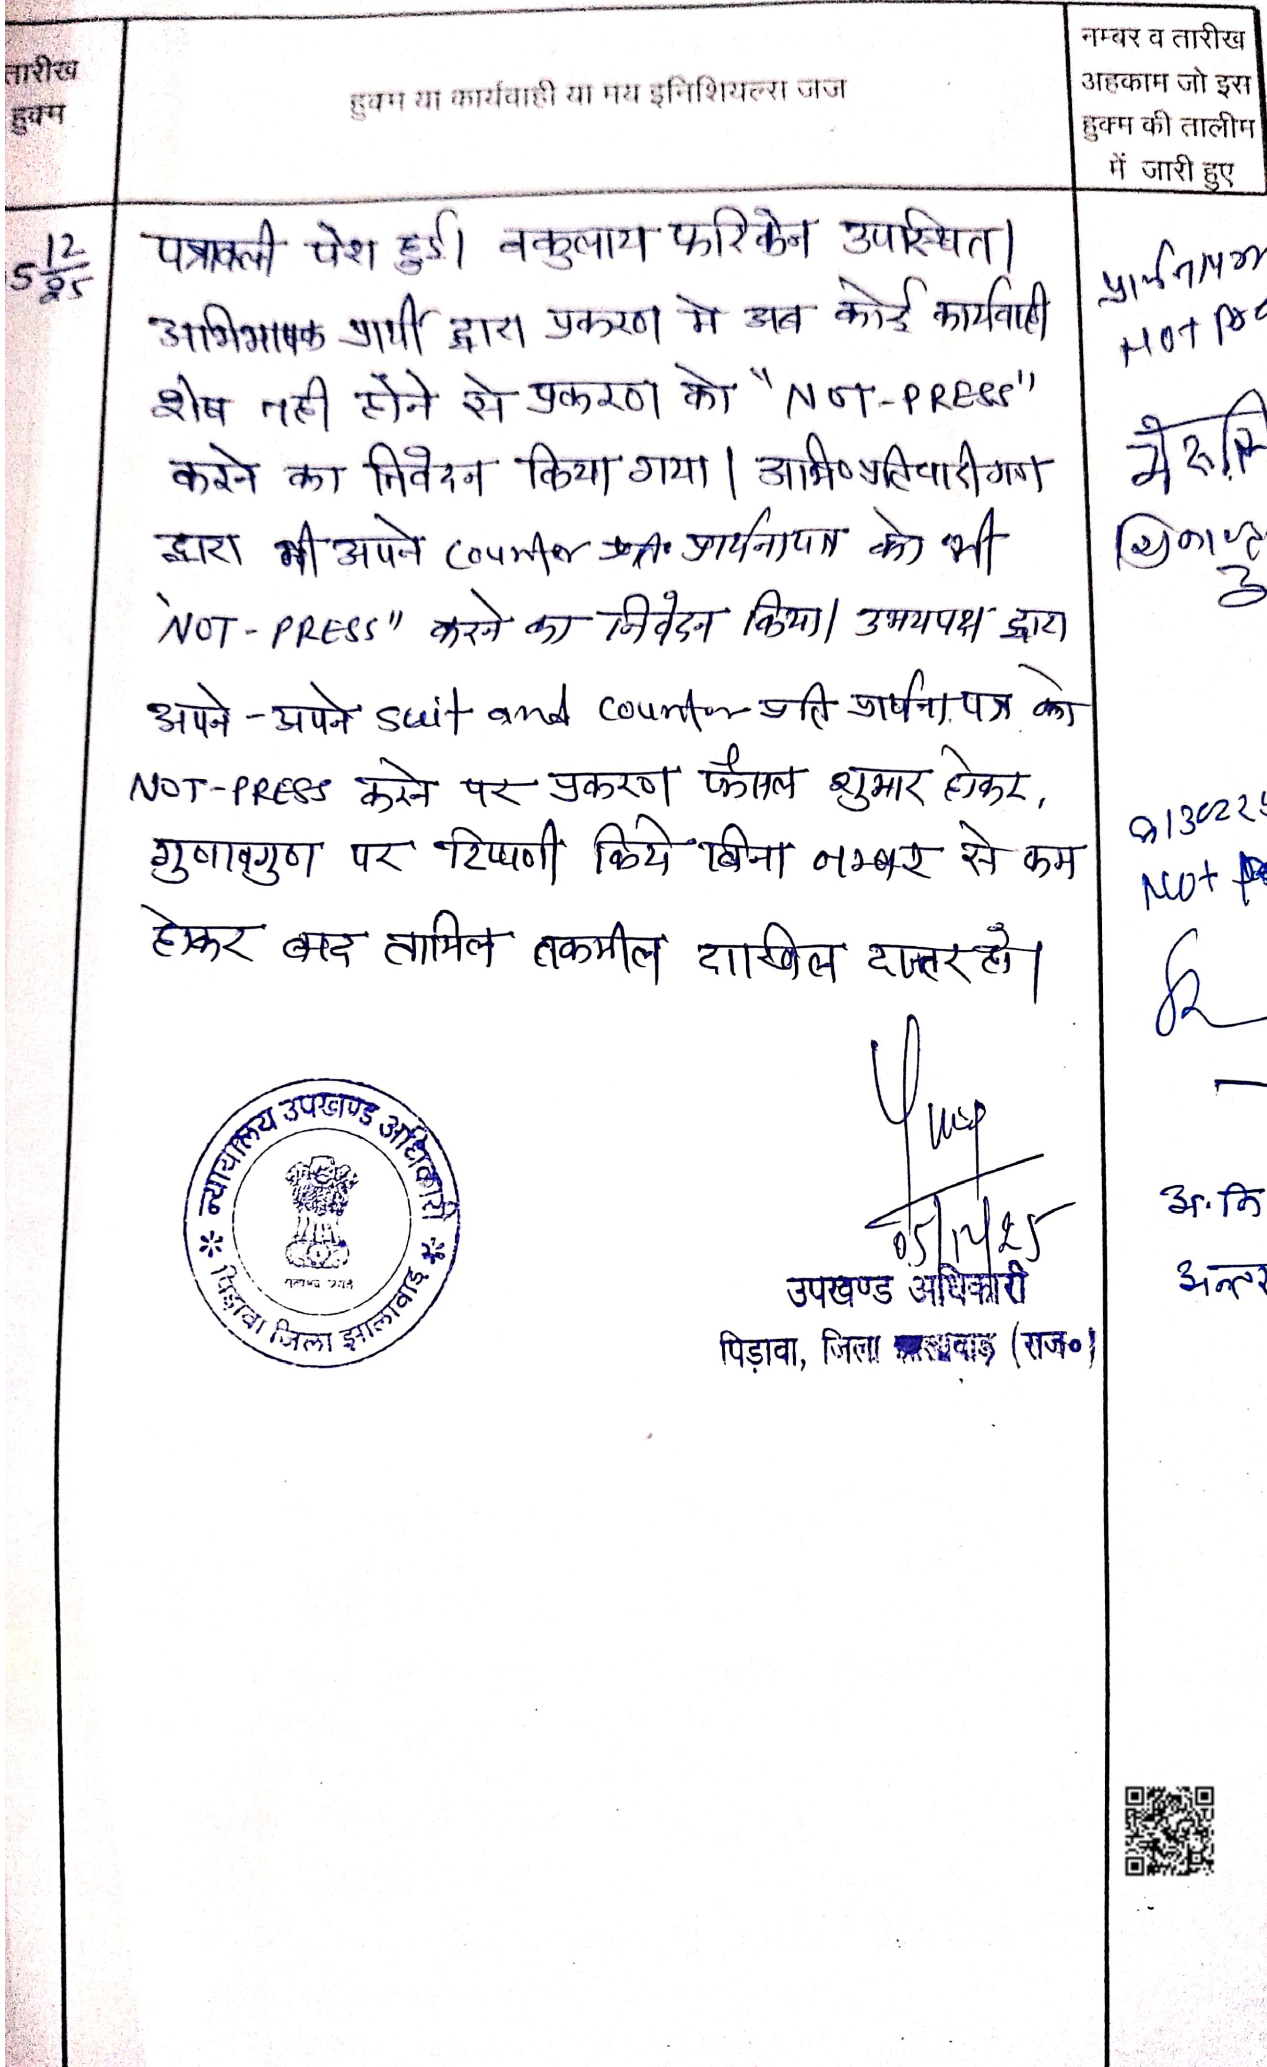 तारीख
हुक्म
हुक्म या कार्यवाही या मय इनिशियल्स जज
नम्बर व तारीख
अहकाम जो इस
हुक्म की तालीम
में जारी हुए
5 12/25
पत्रावली पेश हुई। वकुलाय फरिकेन उपस्थित।
अभिभाषक प्रार्थी द्वारा प्रकरण मे अब कोई कार्यवाही
शेष नही होने से प्रकरण को "NOT-PRESS"
करने का निवेदन किया गया। अभि० प्रतिवादीगण
द्वारा भी अपने counter प्रार्थनापत्र को भी
"NOT-PRESS" करने का निवेदन किया। उभयपक्ष द्वारा
अपने-अपने suit and counter प्रति प्रार्थना पत्र को
NOT-PRESS करने पर प्रकरण फैसल शुमार होकर,
गुणावगुण पर टिप्पणी किये बिना नम्बर से कम
होकर बाद तामिल तकमील दाखिल दफ्तर हो।
प्रार्थनापत्र
Not
Not
अ.
05/12/25
उपखण्ड अधिकारी
पिड़ावा, जिला (राज०)
न्यायालय उपखण्ड अधिकारी
पिड़ावा जिला झालावाड़